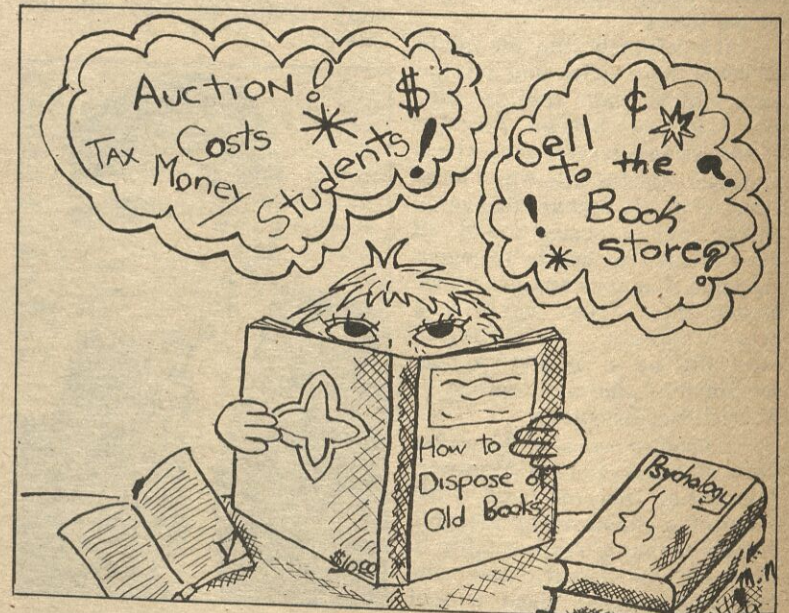 AUCTION!
$
TAX Costs *
Money / Students!
¢
Sell
to the ?
! Book
* store?
How to
Dispose of
Old Books
$10.00
Psychology
m.n